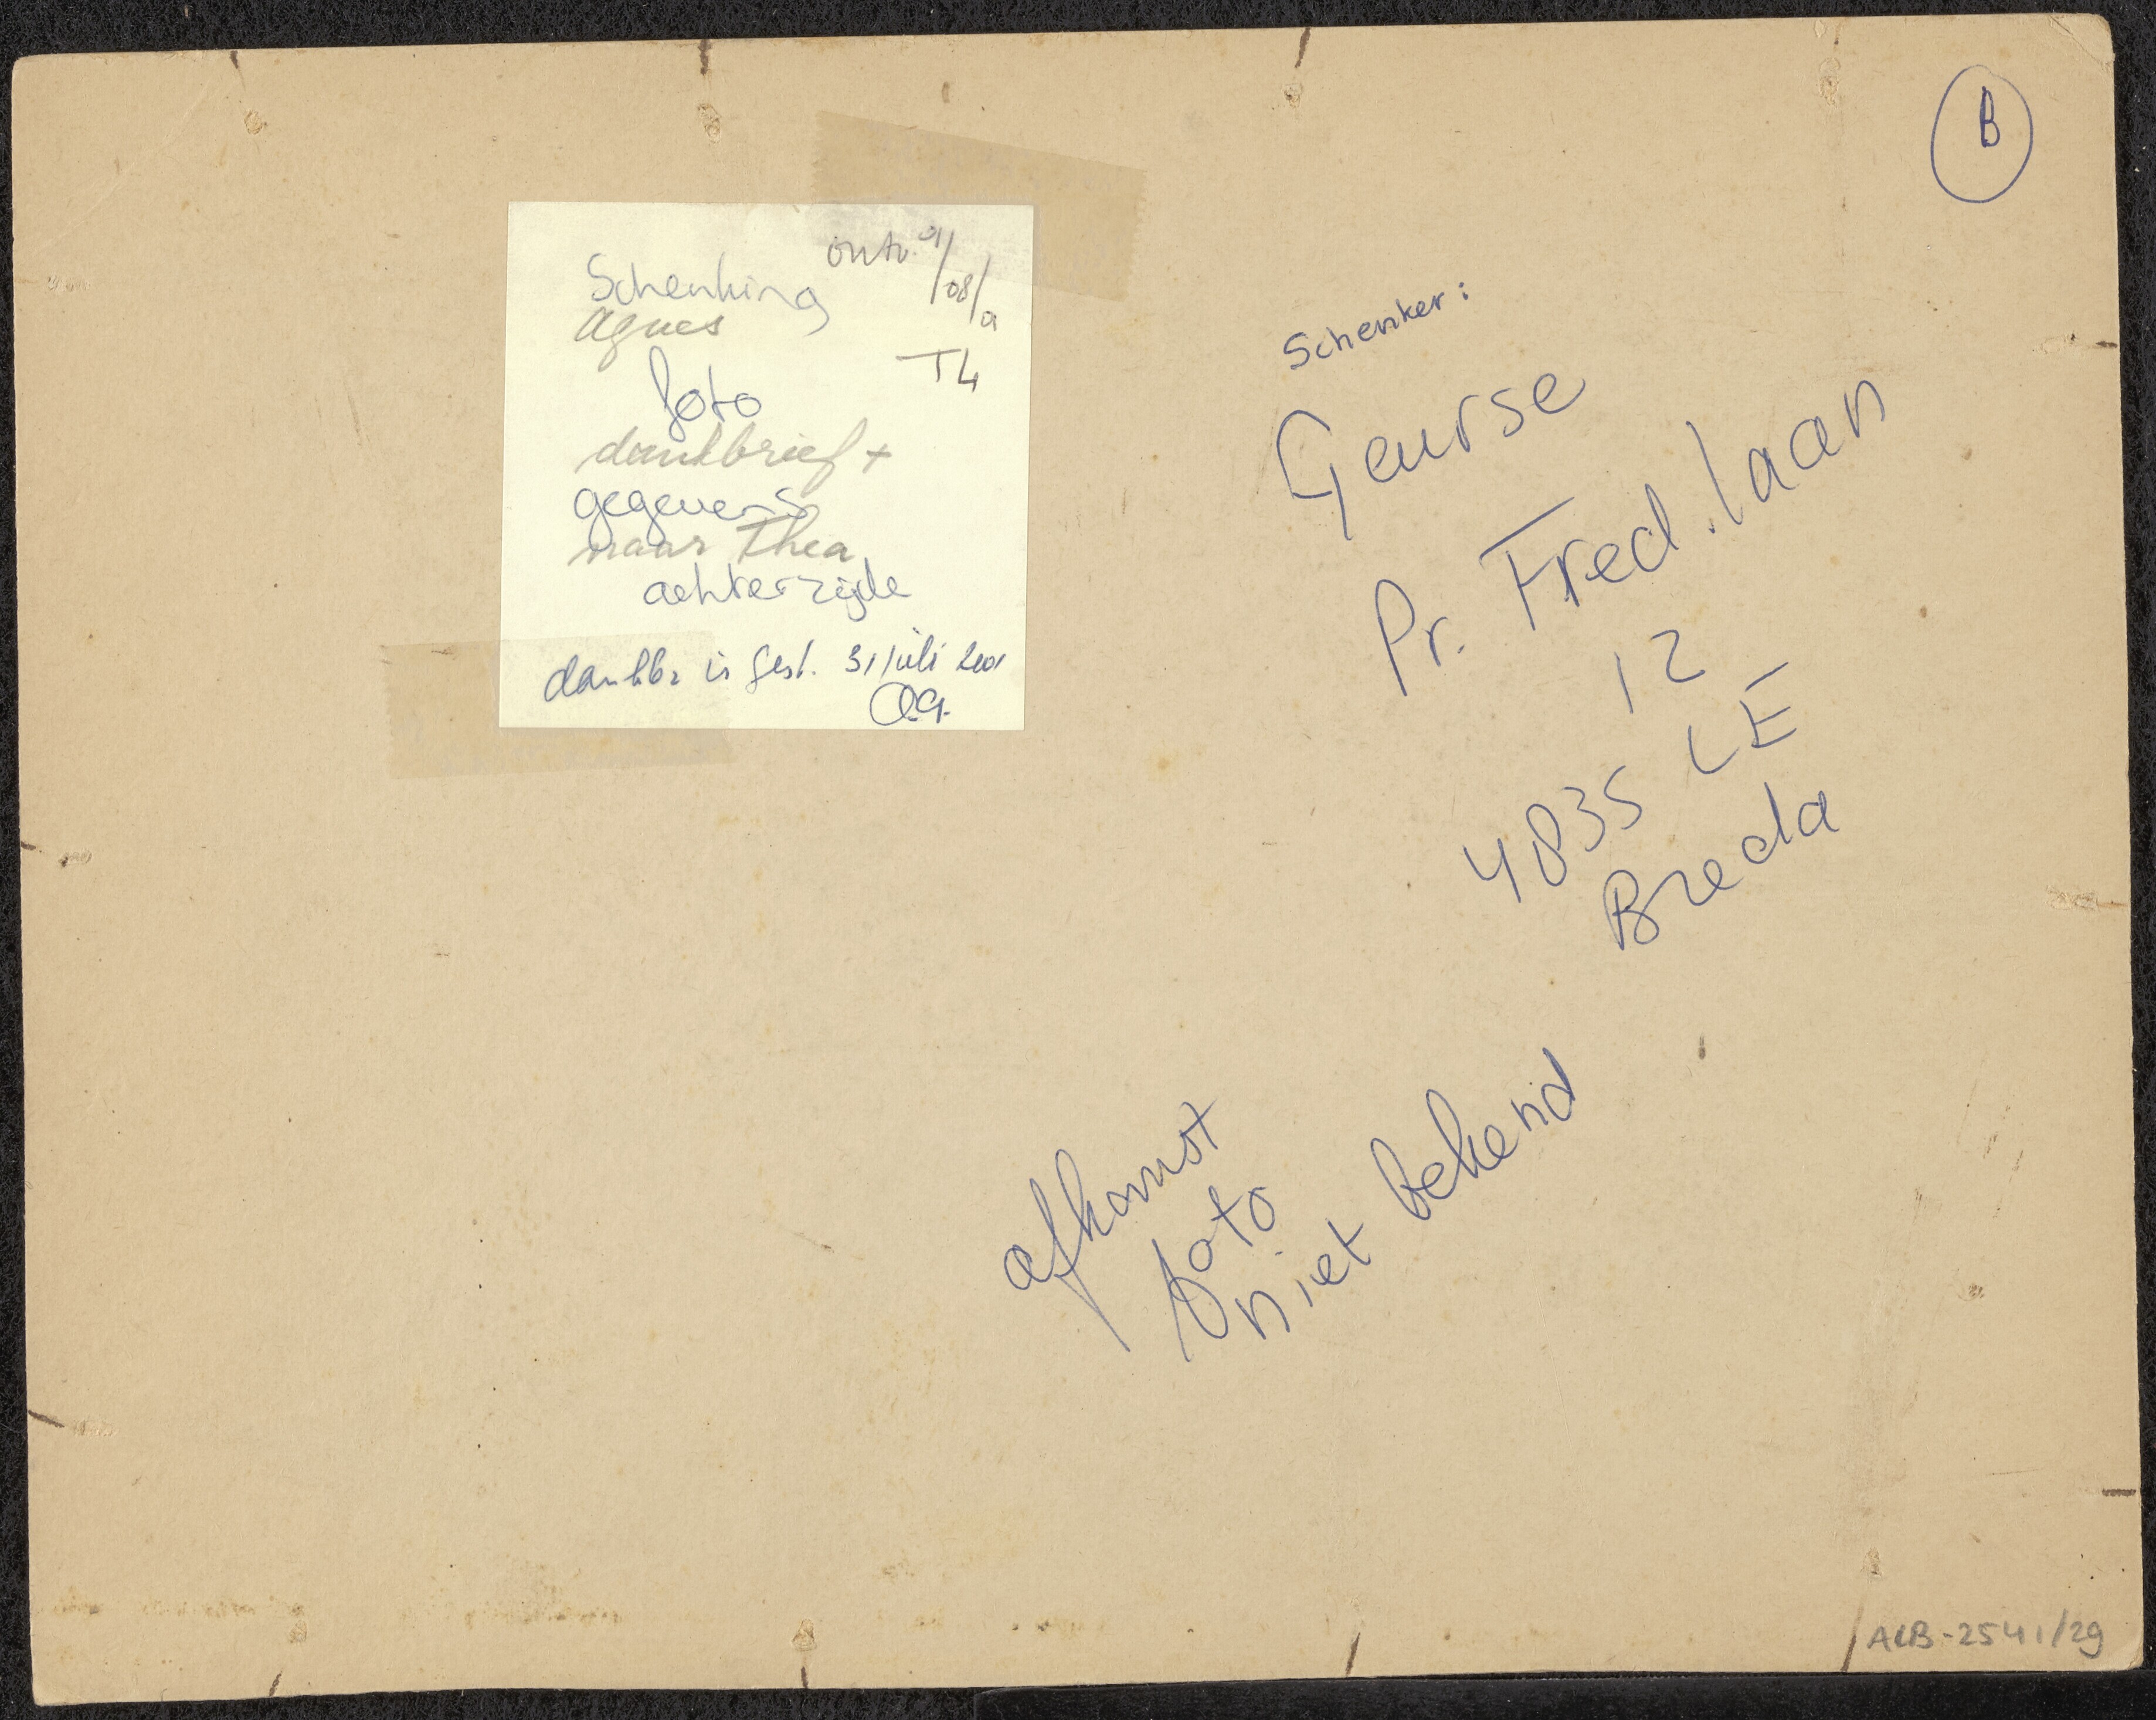 B
Schenking ontv. 01/08/a
Agnes
TL
foto
dankbrief +
gegevens
naar Thea
achterzijde
dankbr is gest. 31 juli 2001
Schenker:
Geurse
Pr. Fred. laan
12
4835 LE
Breda
afkomst
foto
niet bekend
ALB-2541/29